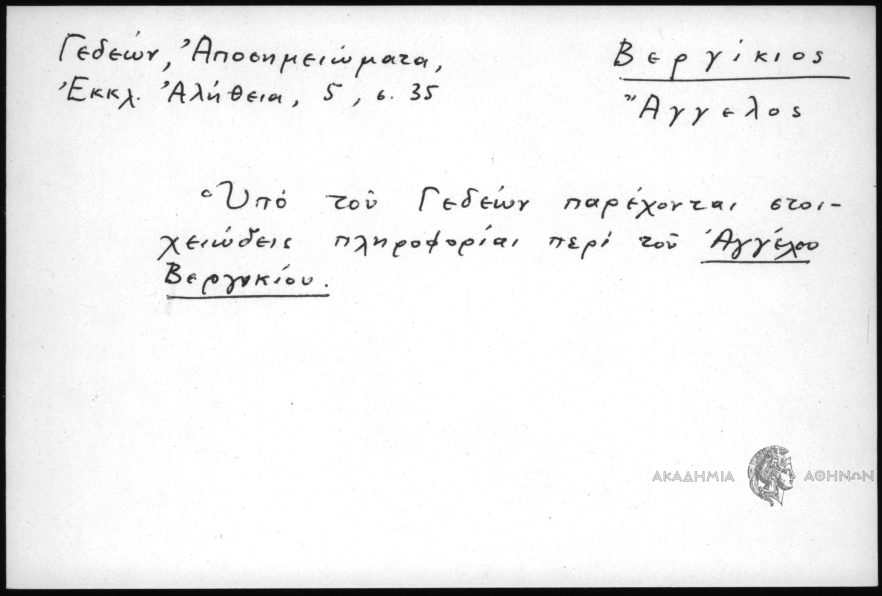 Γεδεών, Ἀποσημειώματα,
Ἐκκλ. Ἀλήθεια, 5, σ. 35
Βεργίκιος
Ἄγγελος
Ὑπό τοῦ Γεδεών παρέχονται στοι-
χειώδεις πληροφορίαι περί τοῦ Ἀγγέλου
Βεργικίου.
ΑΚΑΔΗΜΙΑ ΑΘΗΝΩΝ